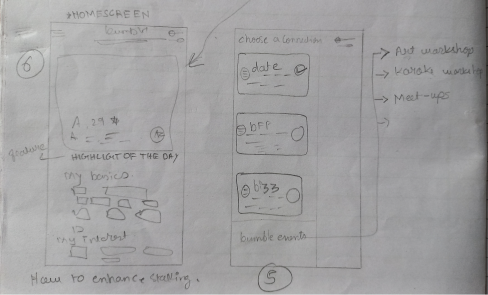 *HOMESCREEN
bumble
6
A, 29
feature
HIGHLIGHT OF THE DAY
my basics
my interest
How to enhance stalling.
choose a connection
date
bFF
bizz
bumble events
5
Art workshop
Karate workshop
Meet-ups